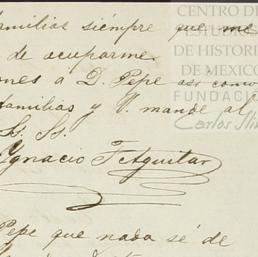 familias siempre que me
de ocuparme
ones á D. Pepe así como
familias y V. mande al
Ss. Ss.
Ygnacio F Aguilar
Pepe que nada sé de
CENTRO DE
DE HISTOR
DE MEXICO
FUNDACIÓN
Carlos Sli